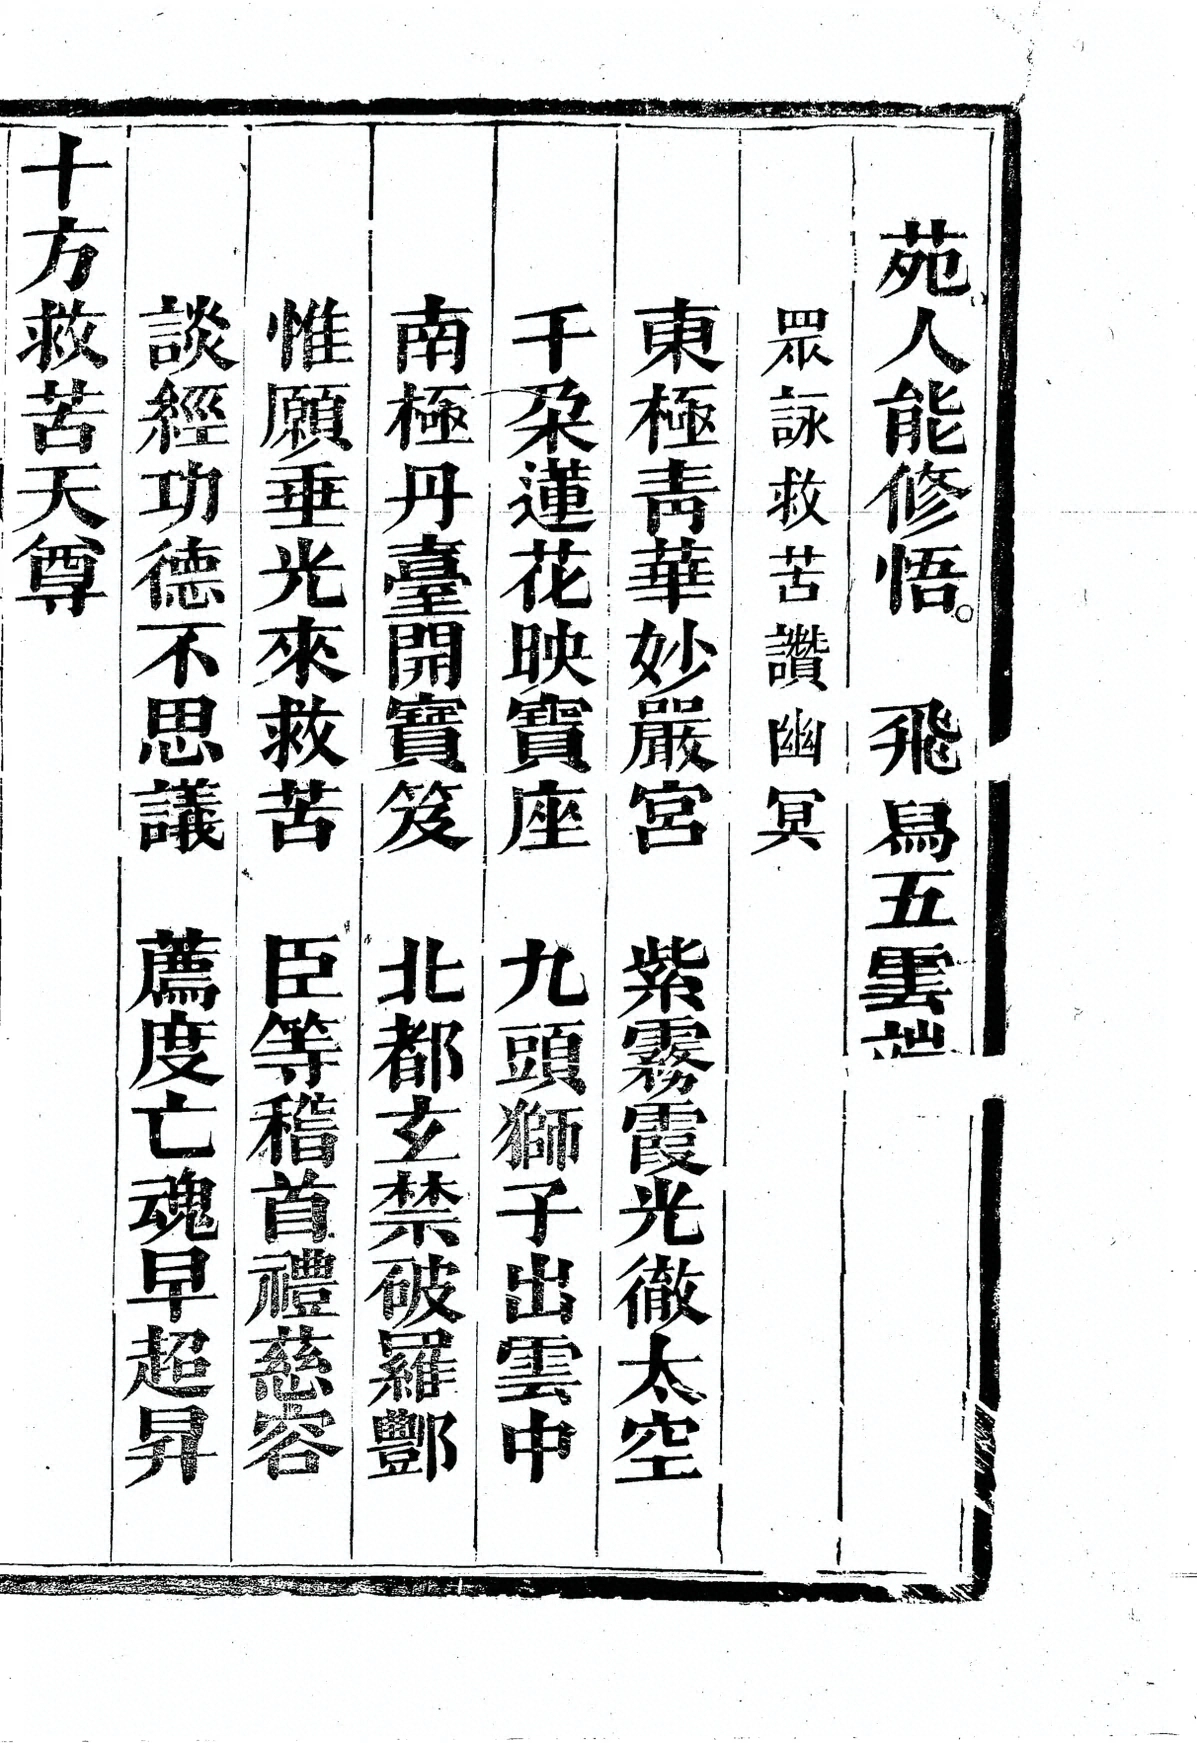 苑人能修悟。　飛舃五雲端
眾詠救苦讚幽冥
東極青華妙嚴宮　紫霧霞光徹太空
千朶蓮花映寳座　九頭獅子出雲中
南極丹臺開寳笈　北都玄禁破羅酆
惟願垂光來救苦　臣等稽首禮慈容
談經功德不思議　薦度亡魂早超昇
十方救苦天尊